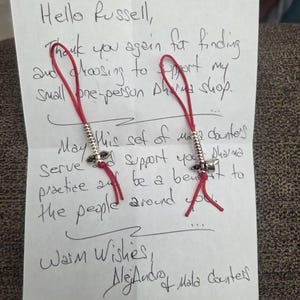 Hello Russell,
Thank you again for finding
and choosing to support my
small one-person Dharma shop.
May this set of mala counters
serve support your Dharma
practice and be a benefit to
the people around
...
Warm Wishes,
Alejandro
of Mala Counters